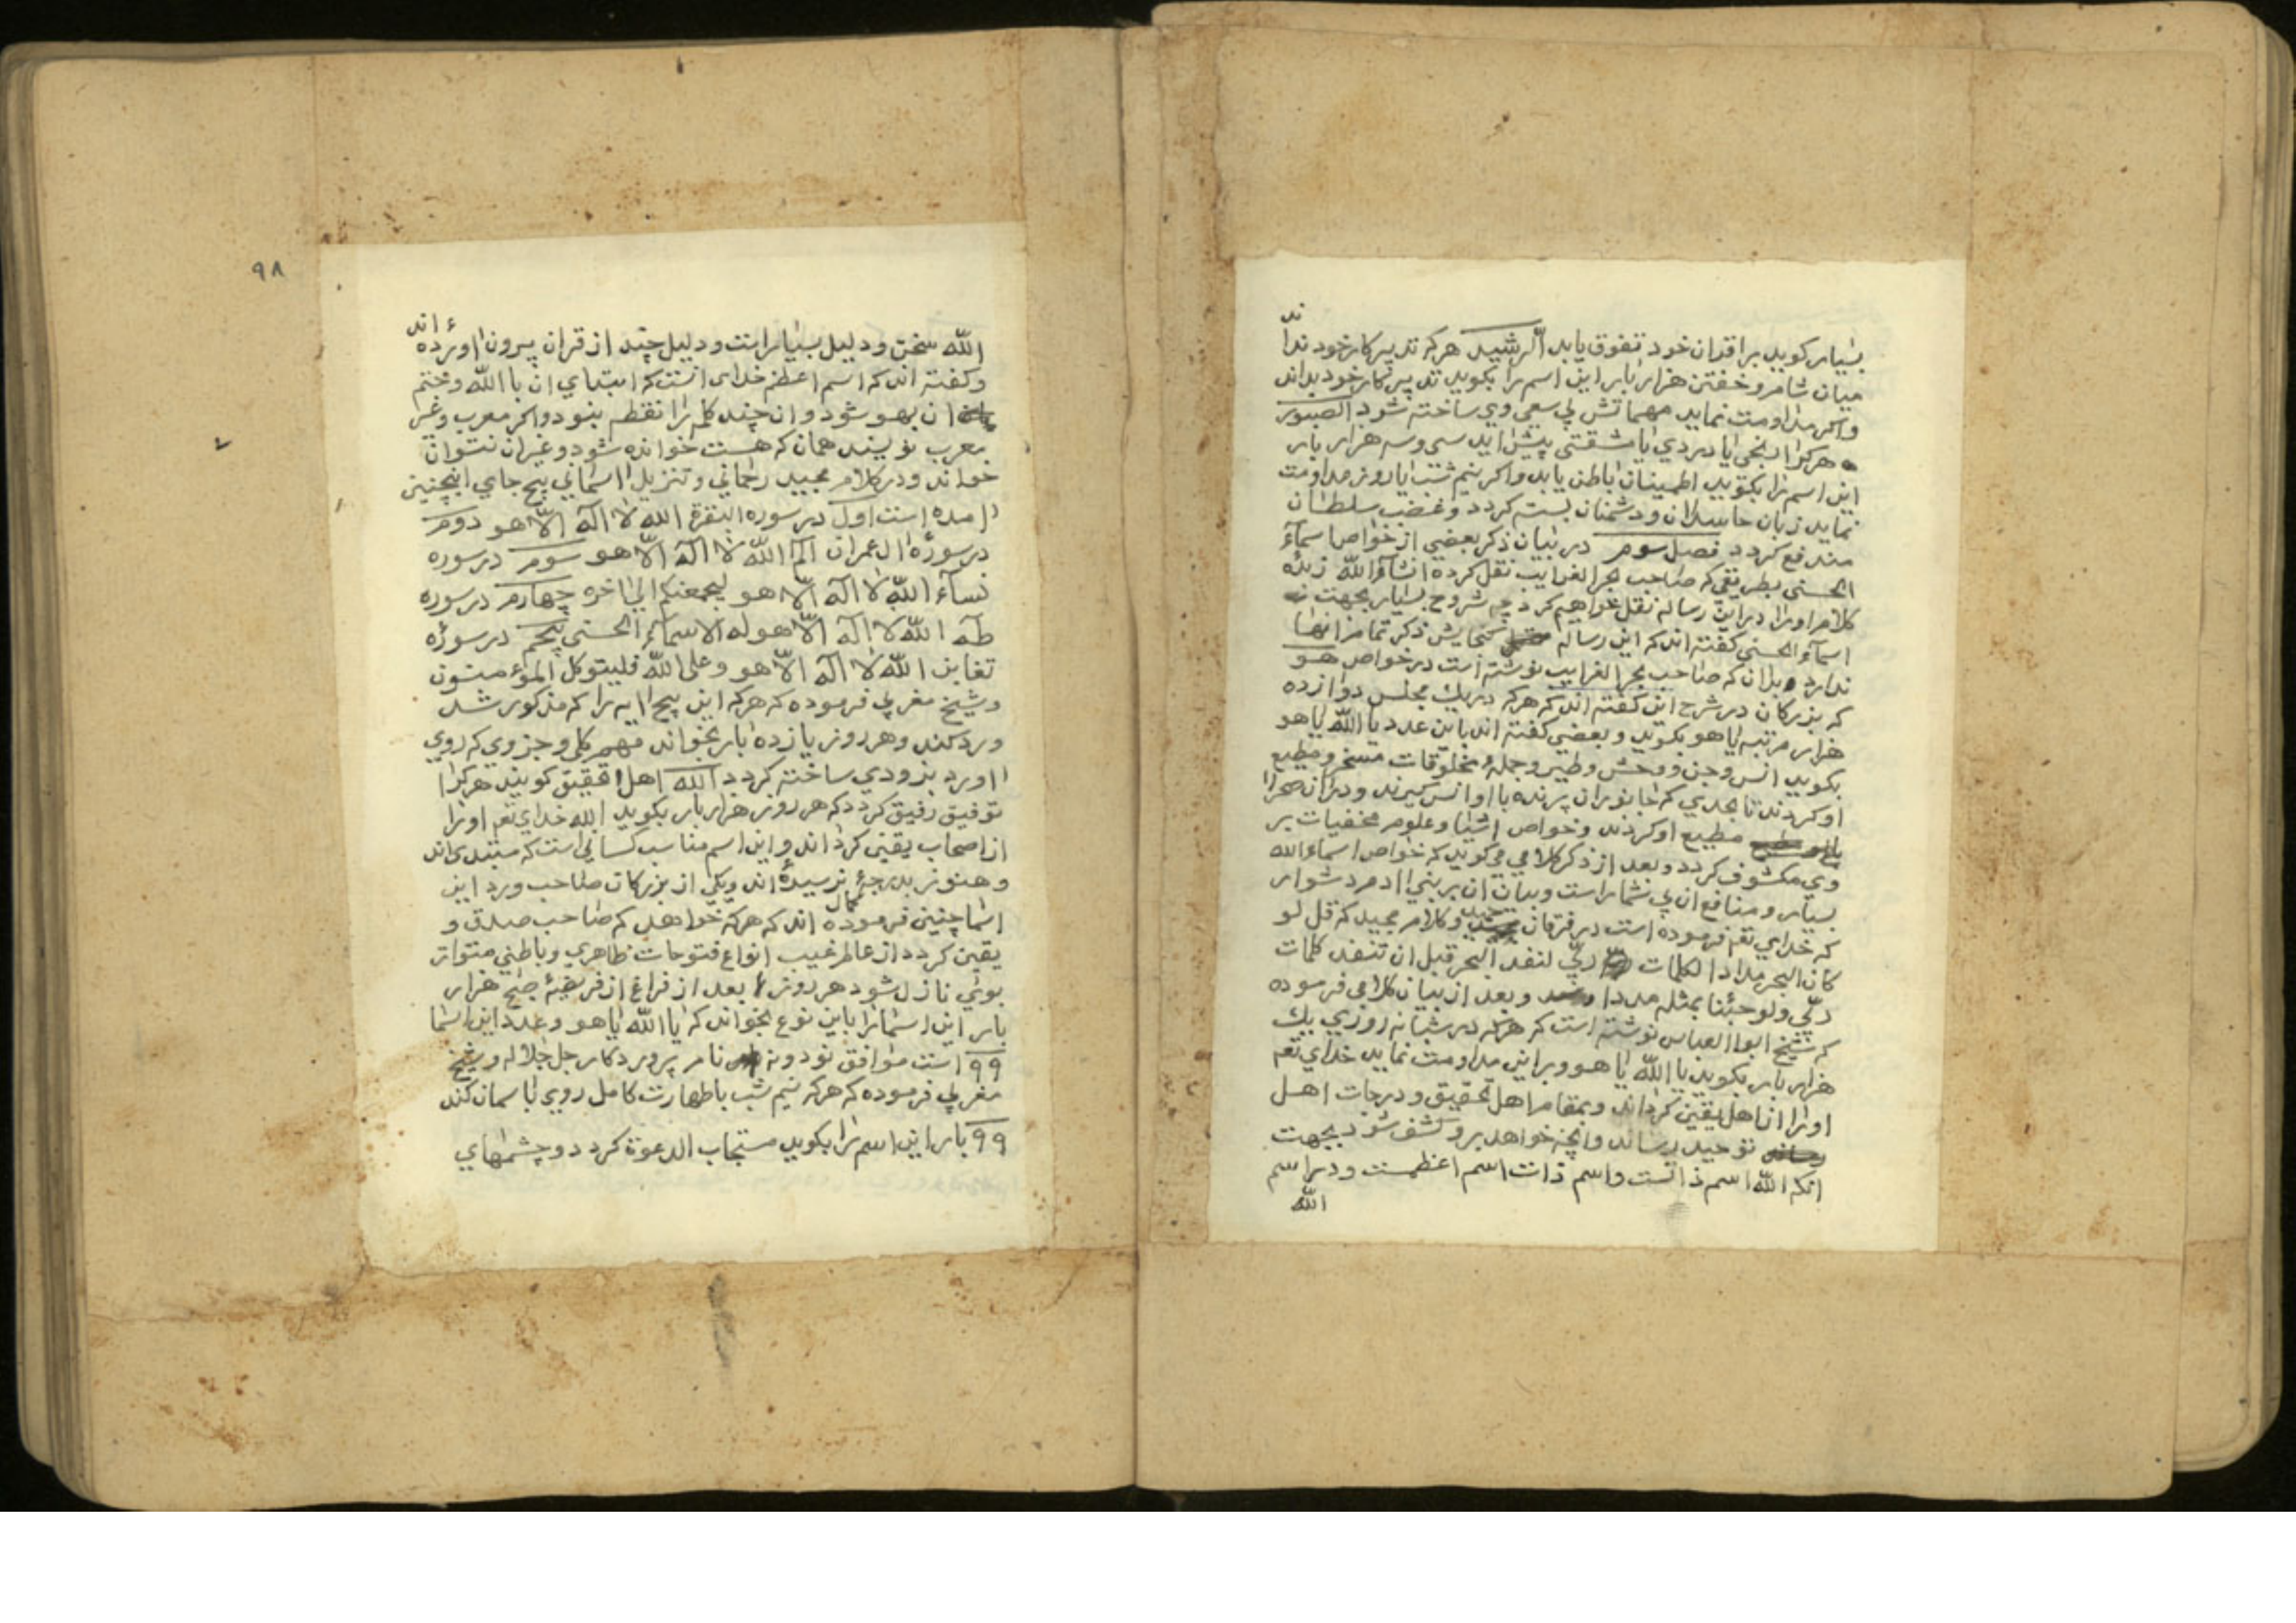 ند
بسیار کوید بر اقران خود تفوق یابد الرشید هر که تدبیر کار خود ندا
میان شام و خفتن هزار بار این اسم را بکوید تدبیر کار خود بداند
واکر مداومت نماید مهماتش بی سعی وی ساخته شود الصبور
هر کرا رنجی یا دردی یا مشقتی پیش اید سی و سه هزار بار
این اسم را بکوید اطمینان باطن یابد واکر نیم شب یا روز مداومت
نماید زبان حاسدان و دشمنان بسته کردد و غضب سلطان
مندفع کردد فصل سوم در بیان ذکر بعضی از خواص اسمآء
الحسنی بطریقی که صاحب بحر الغرایب نقل کرده انشآء الله زبدٔه
کلام او را در این رساله نقل خواهیم کرد چه شروح بسیار بجهت
اسمآء الحسنی کفته اند که این رساله کنجایش ذکر تمام انها
ندارد بدان که صاحب بحر الغرایب نوشته است در خواص هو
که بزرکان در شرح این کفته اند که هر که در یک مجلس دوازده
هزار مرتبه یا هو بکوید و بعضی کفته اند باین عدد یا الله یا هو
بکوید انس و جن و وحش و طیر و جملهٔ مخلوقات مسخر و مطیع
او کردند تا بحدی که جانوران پرنده با او انس کیرند و دران صحرا
مطیع او کردند و خواص اشیا و علوم مخفیات بر
وی مکشوف کردد و بعد از ذکر کلامی می کوید که خواص اسماء الله
بسیار و منافع ان بی شمار است و بیان ان بر بنی ادم دشوار
که خدای تعم فرموده است در فرقان حمید و کلام مجید که قل لو
کان البحر مدادا لکلمات ربّی لنفد البحر قبل ان تنفد کلمات
ربّی ولو جئنا بمثله مددا و بعد از بیان کلامی فرموده
که شیخ ابو العباس نوشته است که هر که در شبانه روزی یک
هزار بار بکوید یا الله یا هو و بر این مداومت نماید خدای تعم
او را از اهل یقین کرداند و بمقام اهل تحقیق و درجات اهل
توحید رساند و انچه خواهد بر او کشف شود بجهت
انکه الله اسم ذاتست و اسم ذات اسم اعظمست و در اسم
الله
٩٨
ء اند
الله سخن و دلیل بسیار است و دلیل چند از قران بیرون اورده
و کفته اند که اسم اعظم خدای انست که ابتدای ان با الله و ختم
ان بهو شود و ان چند کلمه را نقطه نبود و اکر معرب و غیر
معرب نویسند همان که هست خوانده شود و غیر ان نتوان
خواند و در کلام مجید رحمانی و تنزیل اسمانی پنج جای اینچنین
امده است اول در سوره البقرة الله لا اله الّا هو دوم
در سورٔه ال عمران الٓمٓ الله لا اله الّا هو سوم در سوره
نسآء الله لا اله الّا هو لیجمعنکم الی اخره چهارم در سوره
طه الله لا اله الّا هو له الاسمآء الحسنی پنجم در سورٔه
تغابن الله لا اله الّا هو وعلی الله فلیتوکل المؤمنون
و شیخ مغربی فرموده که هر که این پنج ایه را که مذکور شد
ورد کند و هر روز یازده بار بخواند مهم کلی و جزوی که روی
اورد بزودی ساخته کردد الله اهل تحقیق کویند هر کرا
توفیق رفیق کردد که هر روز هزار بار بکوید الله خدای تعم او را
از اصحاب یقین کرداند و این اسم مناسب کسانی است که مبتدی اند
و هنوز بدرجهٔ کمال نرسیدهٔ اند و یکی از بزرکان صاحب ورد این
اسما چنین فرموده اند که هر که خواهد که صاحب صدق و
یقین کردد از عالم غیب انواع فتوحات ظاهری و باطنی متواتر
بوی نازل شود هر روز بعد از فراغ از فریضهٔ صبح هزار
بار این اسما را باین نوع بخواند که یا الله یا هو و عدد این اسما
٩٩ است موافق نود و نه نام پروردکار جل جلاله و شیخ
مغربی فرموده که هر که نیم شب با طهارت کامل روی باسمان کند
٩٩ بار این اسم را بکوید مستجاب الدعوة کردد و چشمهای